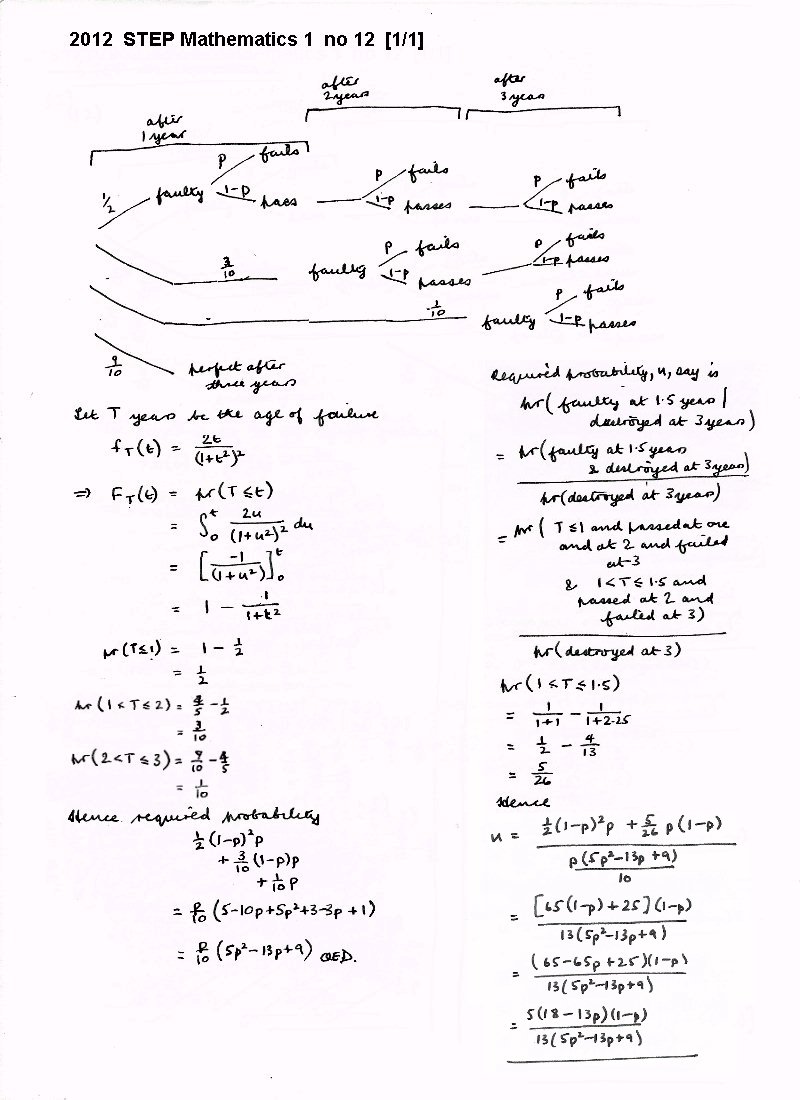 2012 STEP Mathematics 1 no 12 [1/1]
after
1 year
after
2 years
after
3 years
1/2 faulty p fails
1-p passes
p fails
1-p passes
p fails
1-p passes
3/10 faulty p fails
1-p passes
p fails
1-p passes
1/10 faulty p fails
1-p passes
9/10 perfect after
three years
Let T years be the age of failure
f_T(t) = 2t/(1+t²)²
⇒ F_T(t) = pr(T ≤ t)
= ∫₀ᵗ 2u/(1+u²)² du
= [-1/(1+u²)]₀ᵗ
= 1 - 1/(1+t²)
pr(T≤1) = 1 - 1/2
= 1/2
pr(1<T≤2) = 4/5 - 1/2
= 3/10
pr(2<T≤3) = 9/10 - 4/5
= 1/10
Hence required probability
1/2 (1-p)²p
+ 3/10 (1-p)p
+ 1/10 p
= p/10 (5-10p+5p²+3-3p+1)
= p/10 (5p²-13p+9) QED.
Required probability, u, say is
pr( faulty at 1.5 years |
destroyed at 3 years)
= pr(faulty at 1.5 years
& destroyed at 3 years)
pr(destroyed at 3 years)
= pr( T≤1 and passed at one
and at 2 and failed
at 3
& 1<T≤1.5 and
passed at 2 and
failed at 3)
pr(destroyed at 3)
pr(1<T≤1.5)
= 1/(1+1) - 1/(1+2.25)
= 1/2 - 4/13
= 5/26
Hence
u = 1/2(1-p)²p + 5/26 p(1-p)
p(5p²-13p+9)
10
= [65(1-p)+25](1-p)
13(5p²-13p+9)
= (65-65p+25)(1-p)
13(5p²-13p+9)
= 5(18-13p)(1-p)
13(5p²-13p+9)